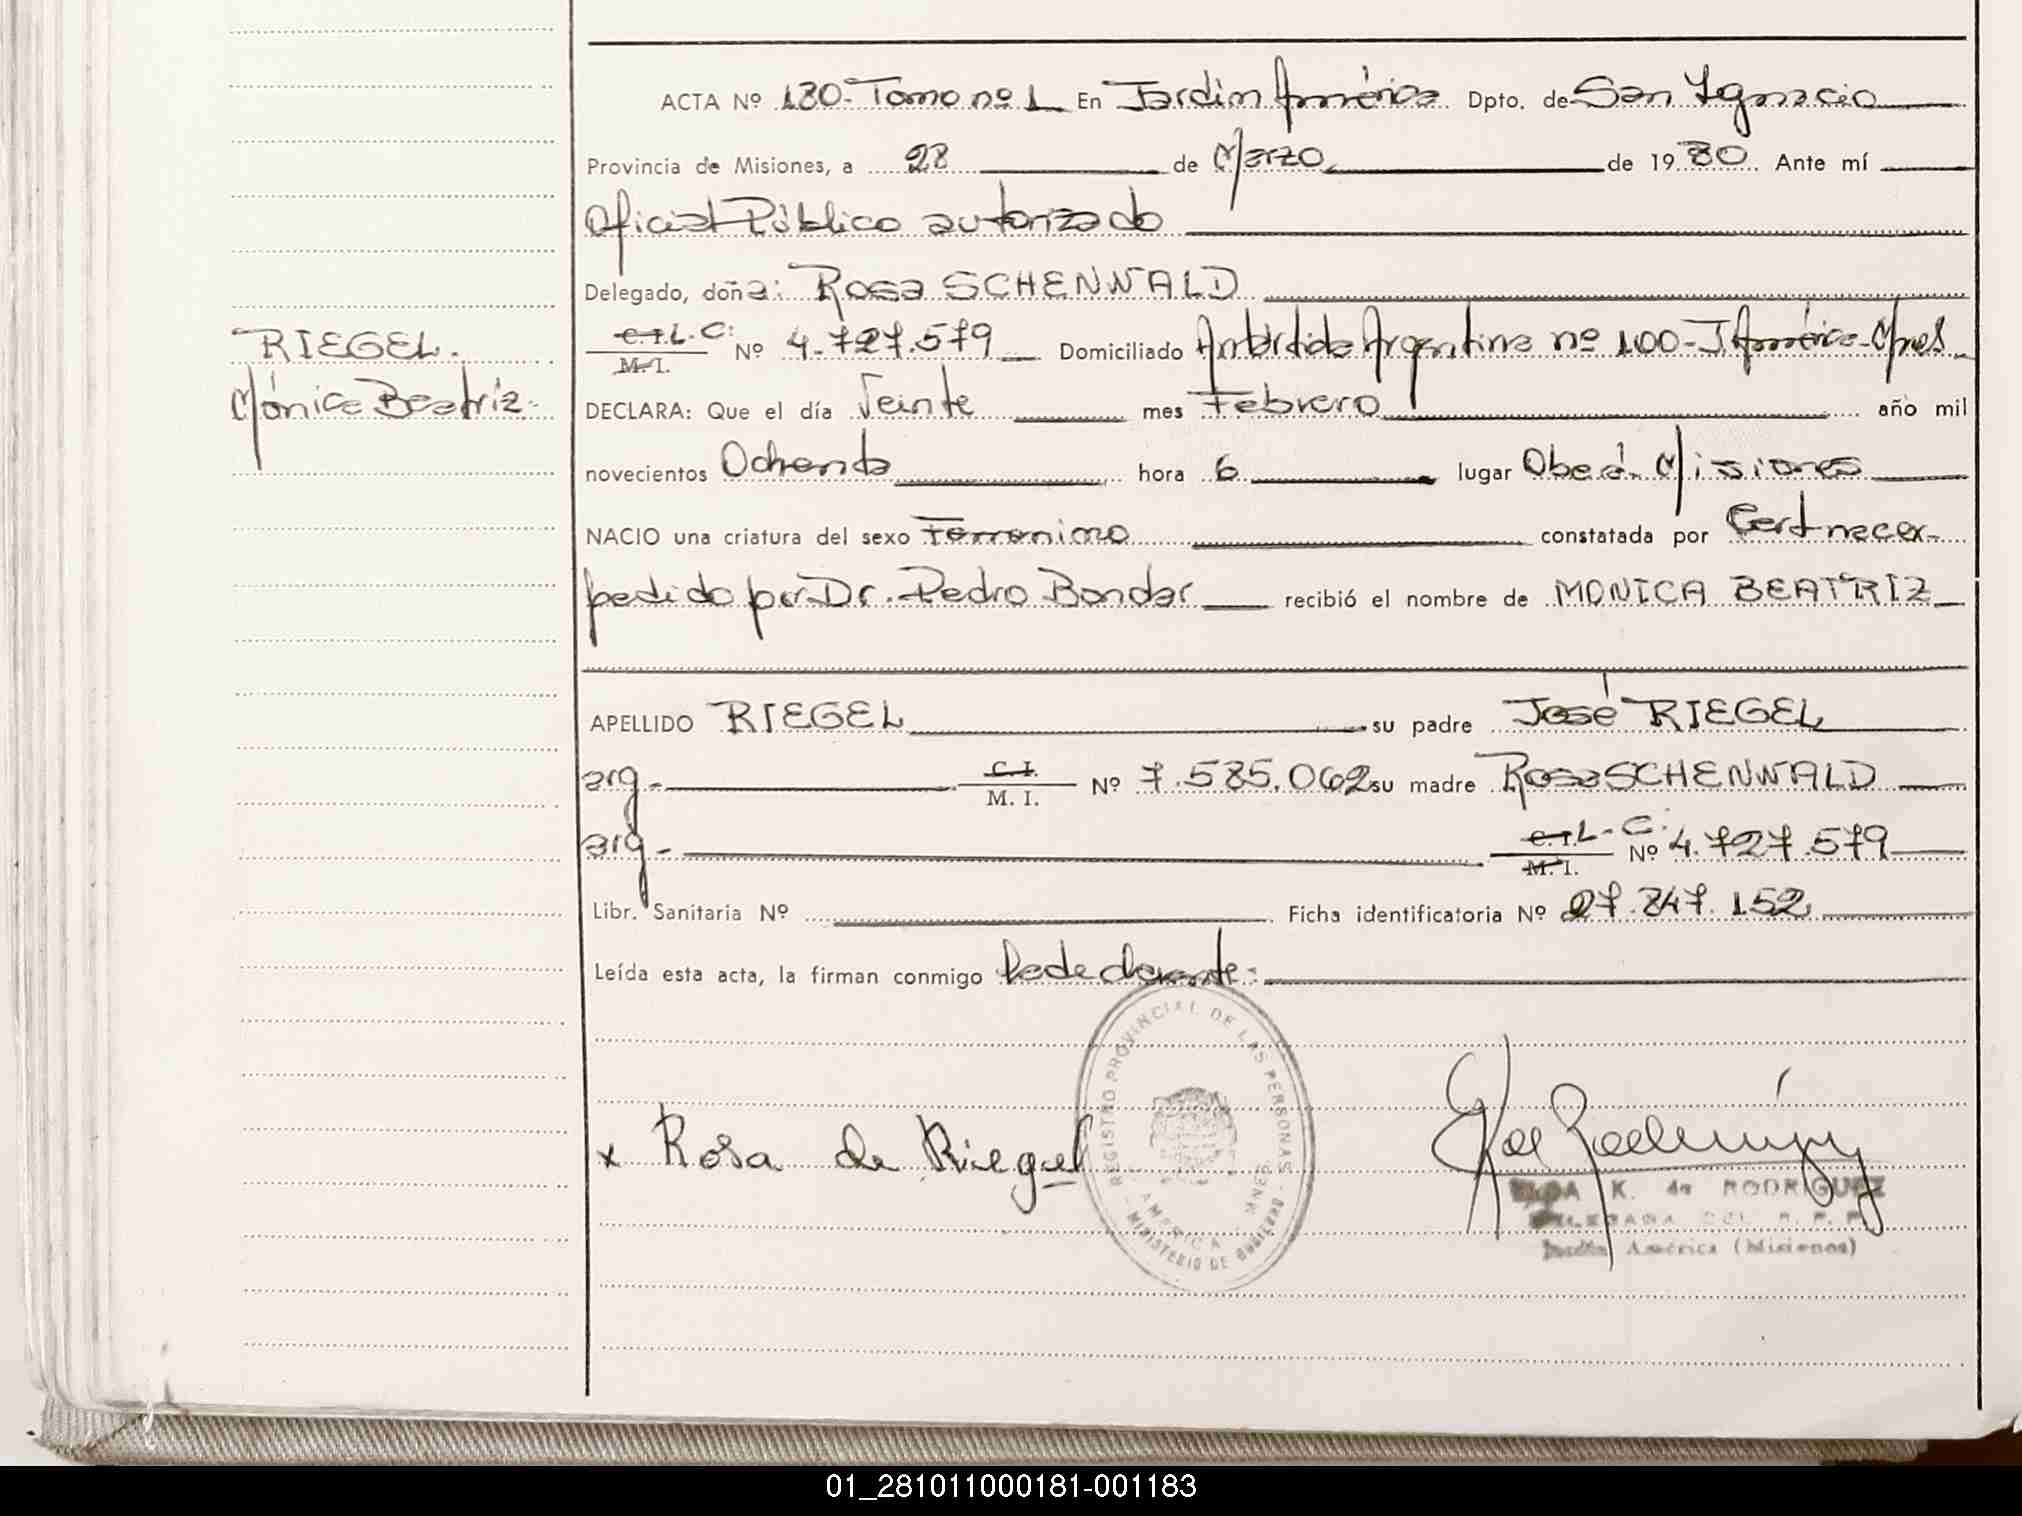 ACTA Nº 180- Tomo nº 1 En Jardín América Dpto. de San Ignacio
Provincia de Misiones, a 28 de Marzo de 1980. Ante mí
Oficial Público autorizado
Delegado, doña: Rosa SCHENWALD
RIEGEL.
C.I. L.C. M.I. Nº 4.727.579 Domiciliado Antártida Argentina nº 100- J. América- Mnes.
Mónica Beatriz.
DECLARA: Que el día Veinte mes Febrero año mil
novecientos Ochenta hora 6 lugar Oberá- Misiones
NACIO una criatura del sexo Femenino constatada por Cert necex-
pedido por Dr. Pedro Bondar recibió el nombre de MONICA BEATRIZ
APELLIDO RIEGEL su padre José RIEGEL
arg- C.I. M. I. Nº 7.585.062 su madre Rosa SCHENWALD
arg- C.I. L-C. M.I. Nº 4.727.579
Libr. Sanitaria Nº Ficha identificatoria Nº 27.847.152
Leída esta acta, la firman conmigo
REGISTRO PROVINCIAL DE LAS PERSONAS - MINISTERIO DE
AMERICA - MNES
x Rosa de Riegel
K. de RODRIGUEZ
Jardín América (Misiones)
01_281011000181-001183